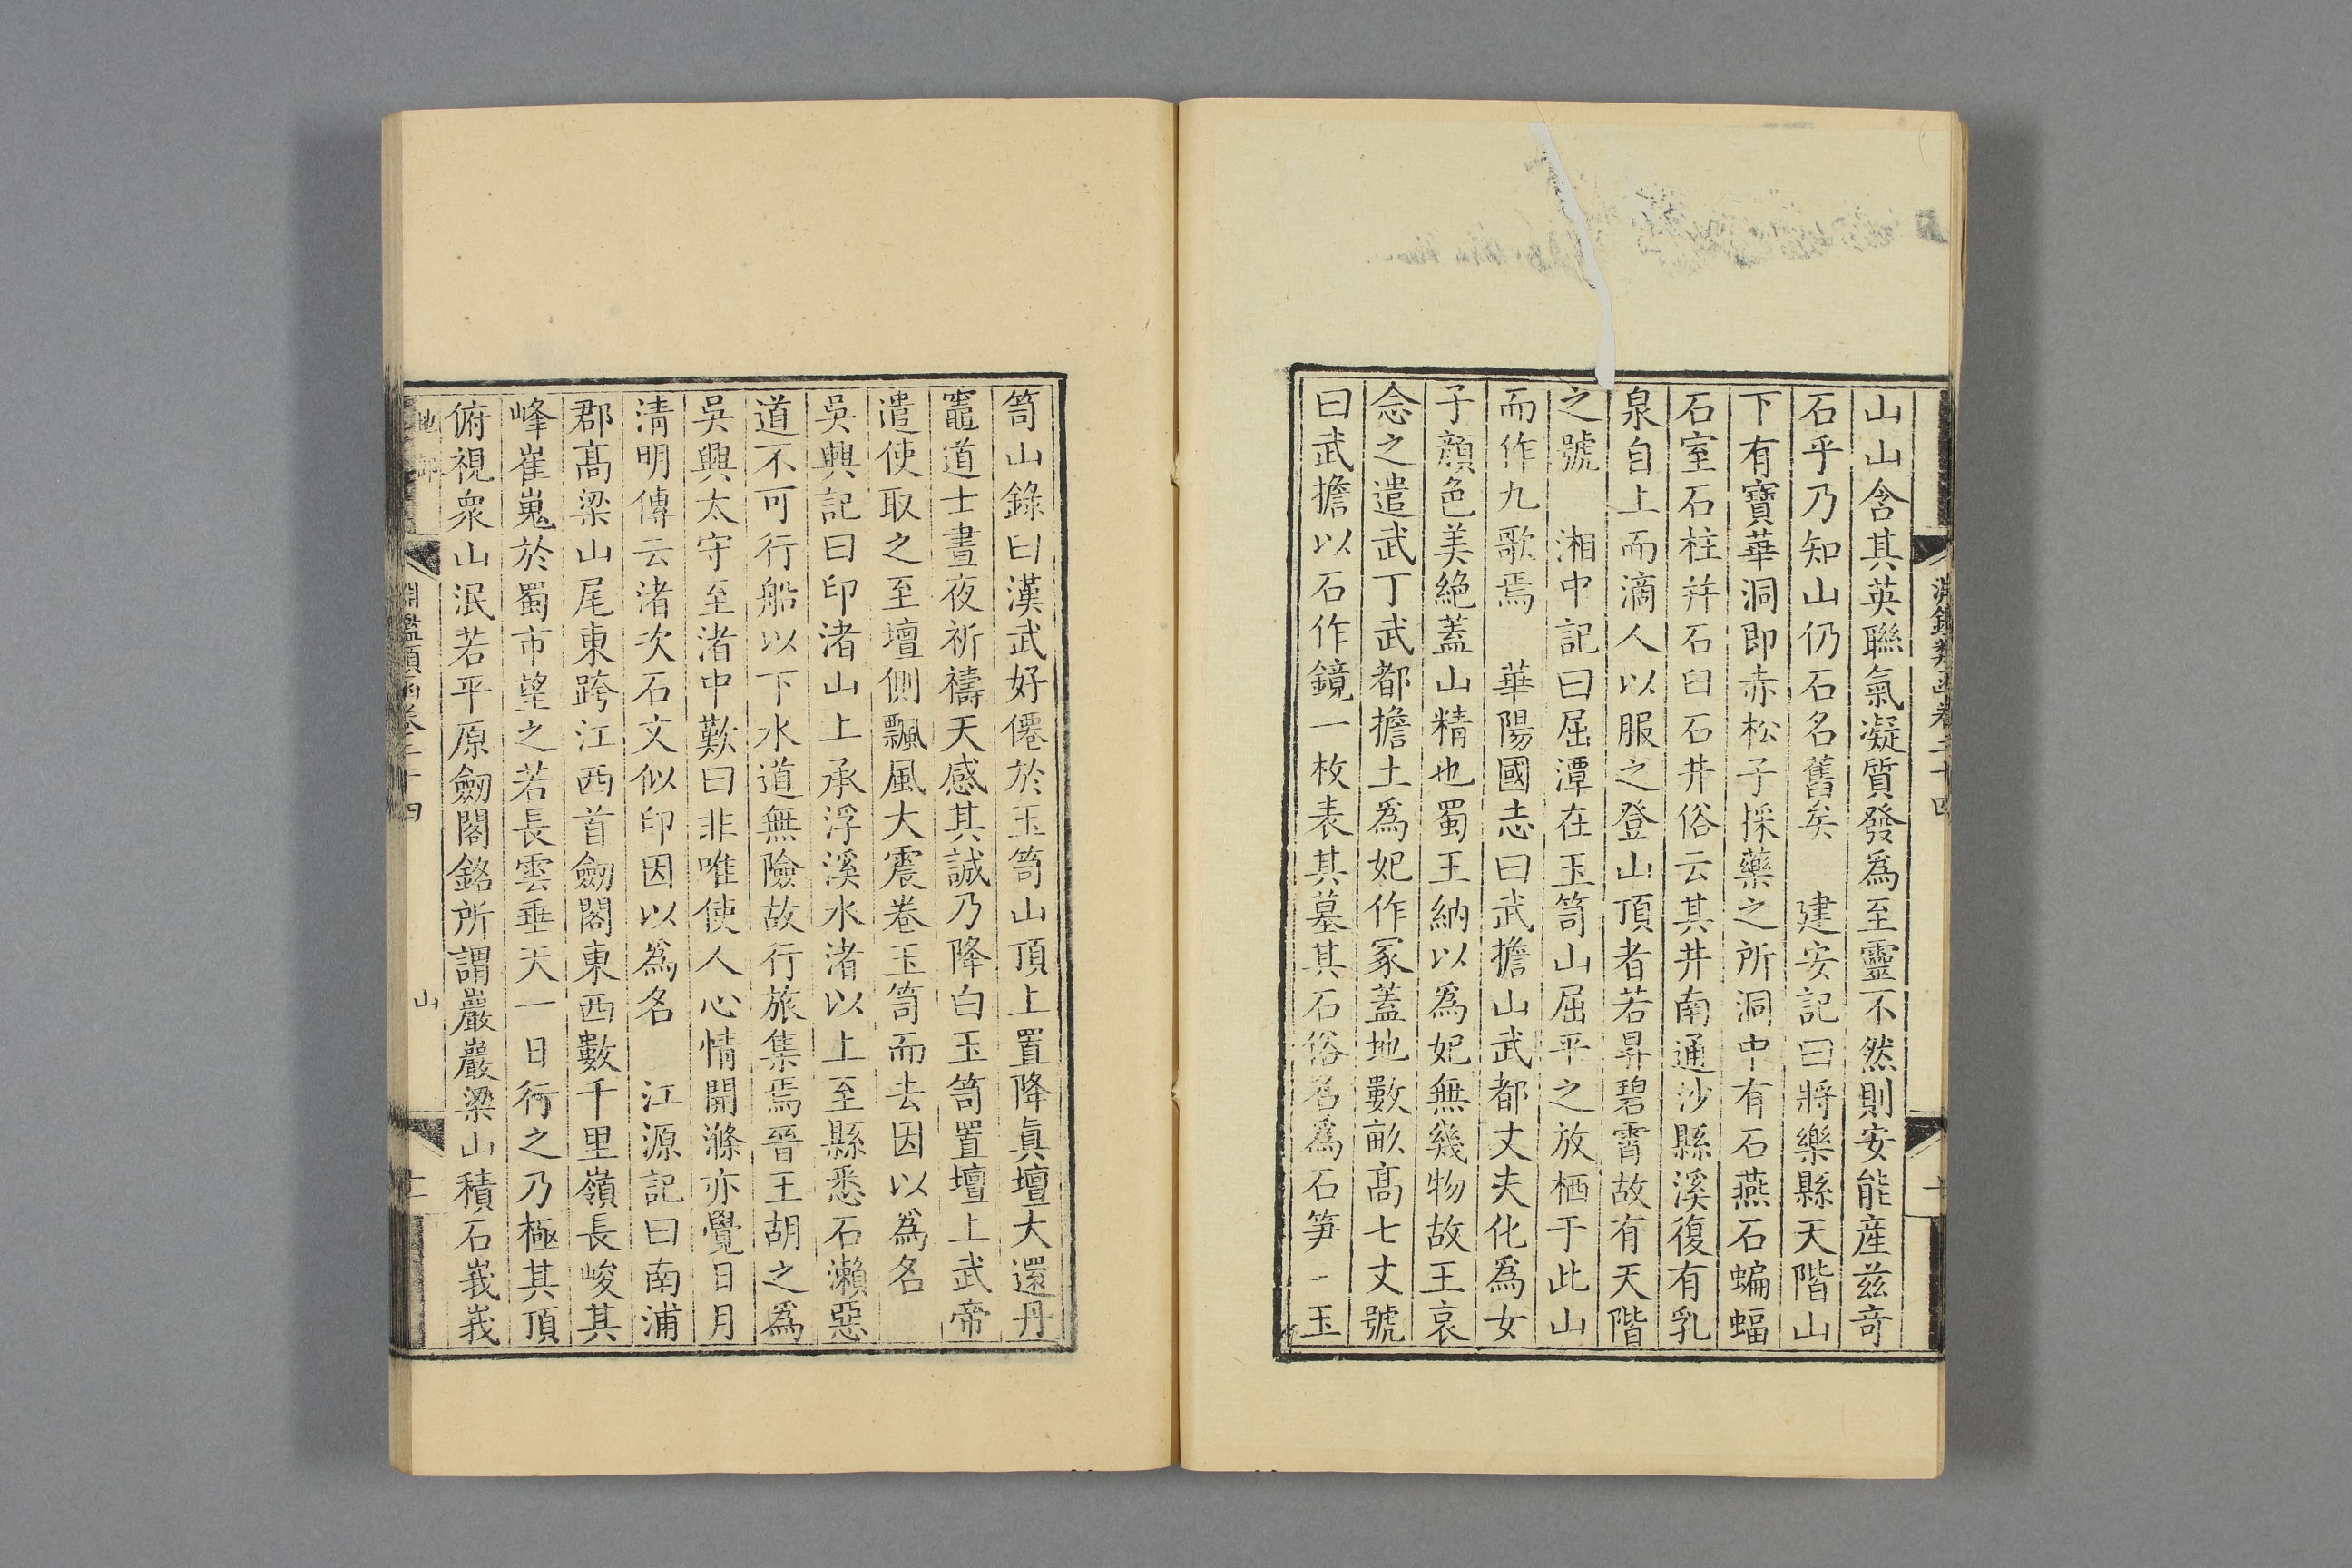 淵鑑類函卷二十四
山山含其英聯氣凝質發爲至靈不然則安能產茲奇
石乎乃知山仍石名舊矣　建安記曰將樂縣天階山
下有寶華洞即赤松子採藥之所洞中有石燕石蝙蝠
石室石柱并石臼石井俗云其井南通沙縣溪復有乳
泉自上而滴人以服之登山頂者若昇碧霄故有天階
之號　湘中記曰屈潭在玉笥山屈平之放栖于此山
而作九歌焉　華陽國志曰武擔山武都丈夫化爲女
子顏色美絕蓋山精也蜀王納以爲妃無幾物故王哀
念之遣武丁武都擔土爲妃作冢蓋地數畝高七丈號
曰武擔以石作鏡一枚表其墓其石俗名爲石笋　玉
笥山錄曰漢武好僊於玉笥山頂上置降眞壇大還丹
竈道士晝夜祈禱天感其誠乃降白玉笥置壇上武帝
遣使取之至壇側飄風大震卷玉笥而去因以爲名
吳興記曰印渚山上承浮溪水渚以上至縣悉石瀨惡
道不可行船以下水道無險故行旅集焉晉王胡之爲
吳興太守至渚中歎曰非唯使人心情開滌亦覺日月
清明傳云渚次石文似印因以爲名　江源記曰南浦
郡高梁山尾東跨江西首劒閣東西數千里嶺長峻其
峰崔嵬於蜀市望之若長雲垂天一日行之乃極其頂
俯視衆山泯若平原劒閣銘所謂巖巖梁山積石峩峩
地部
淵鑑類函卷二十四
山